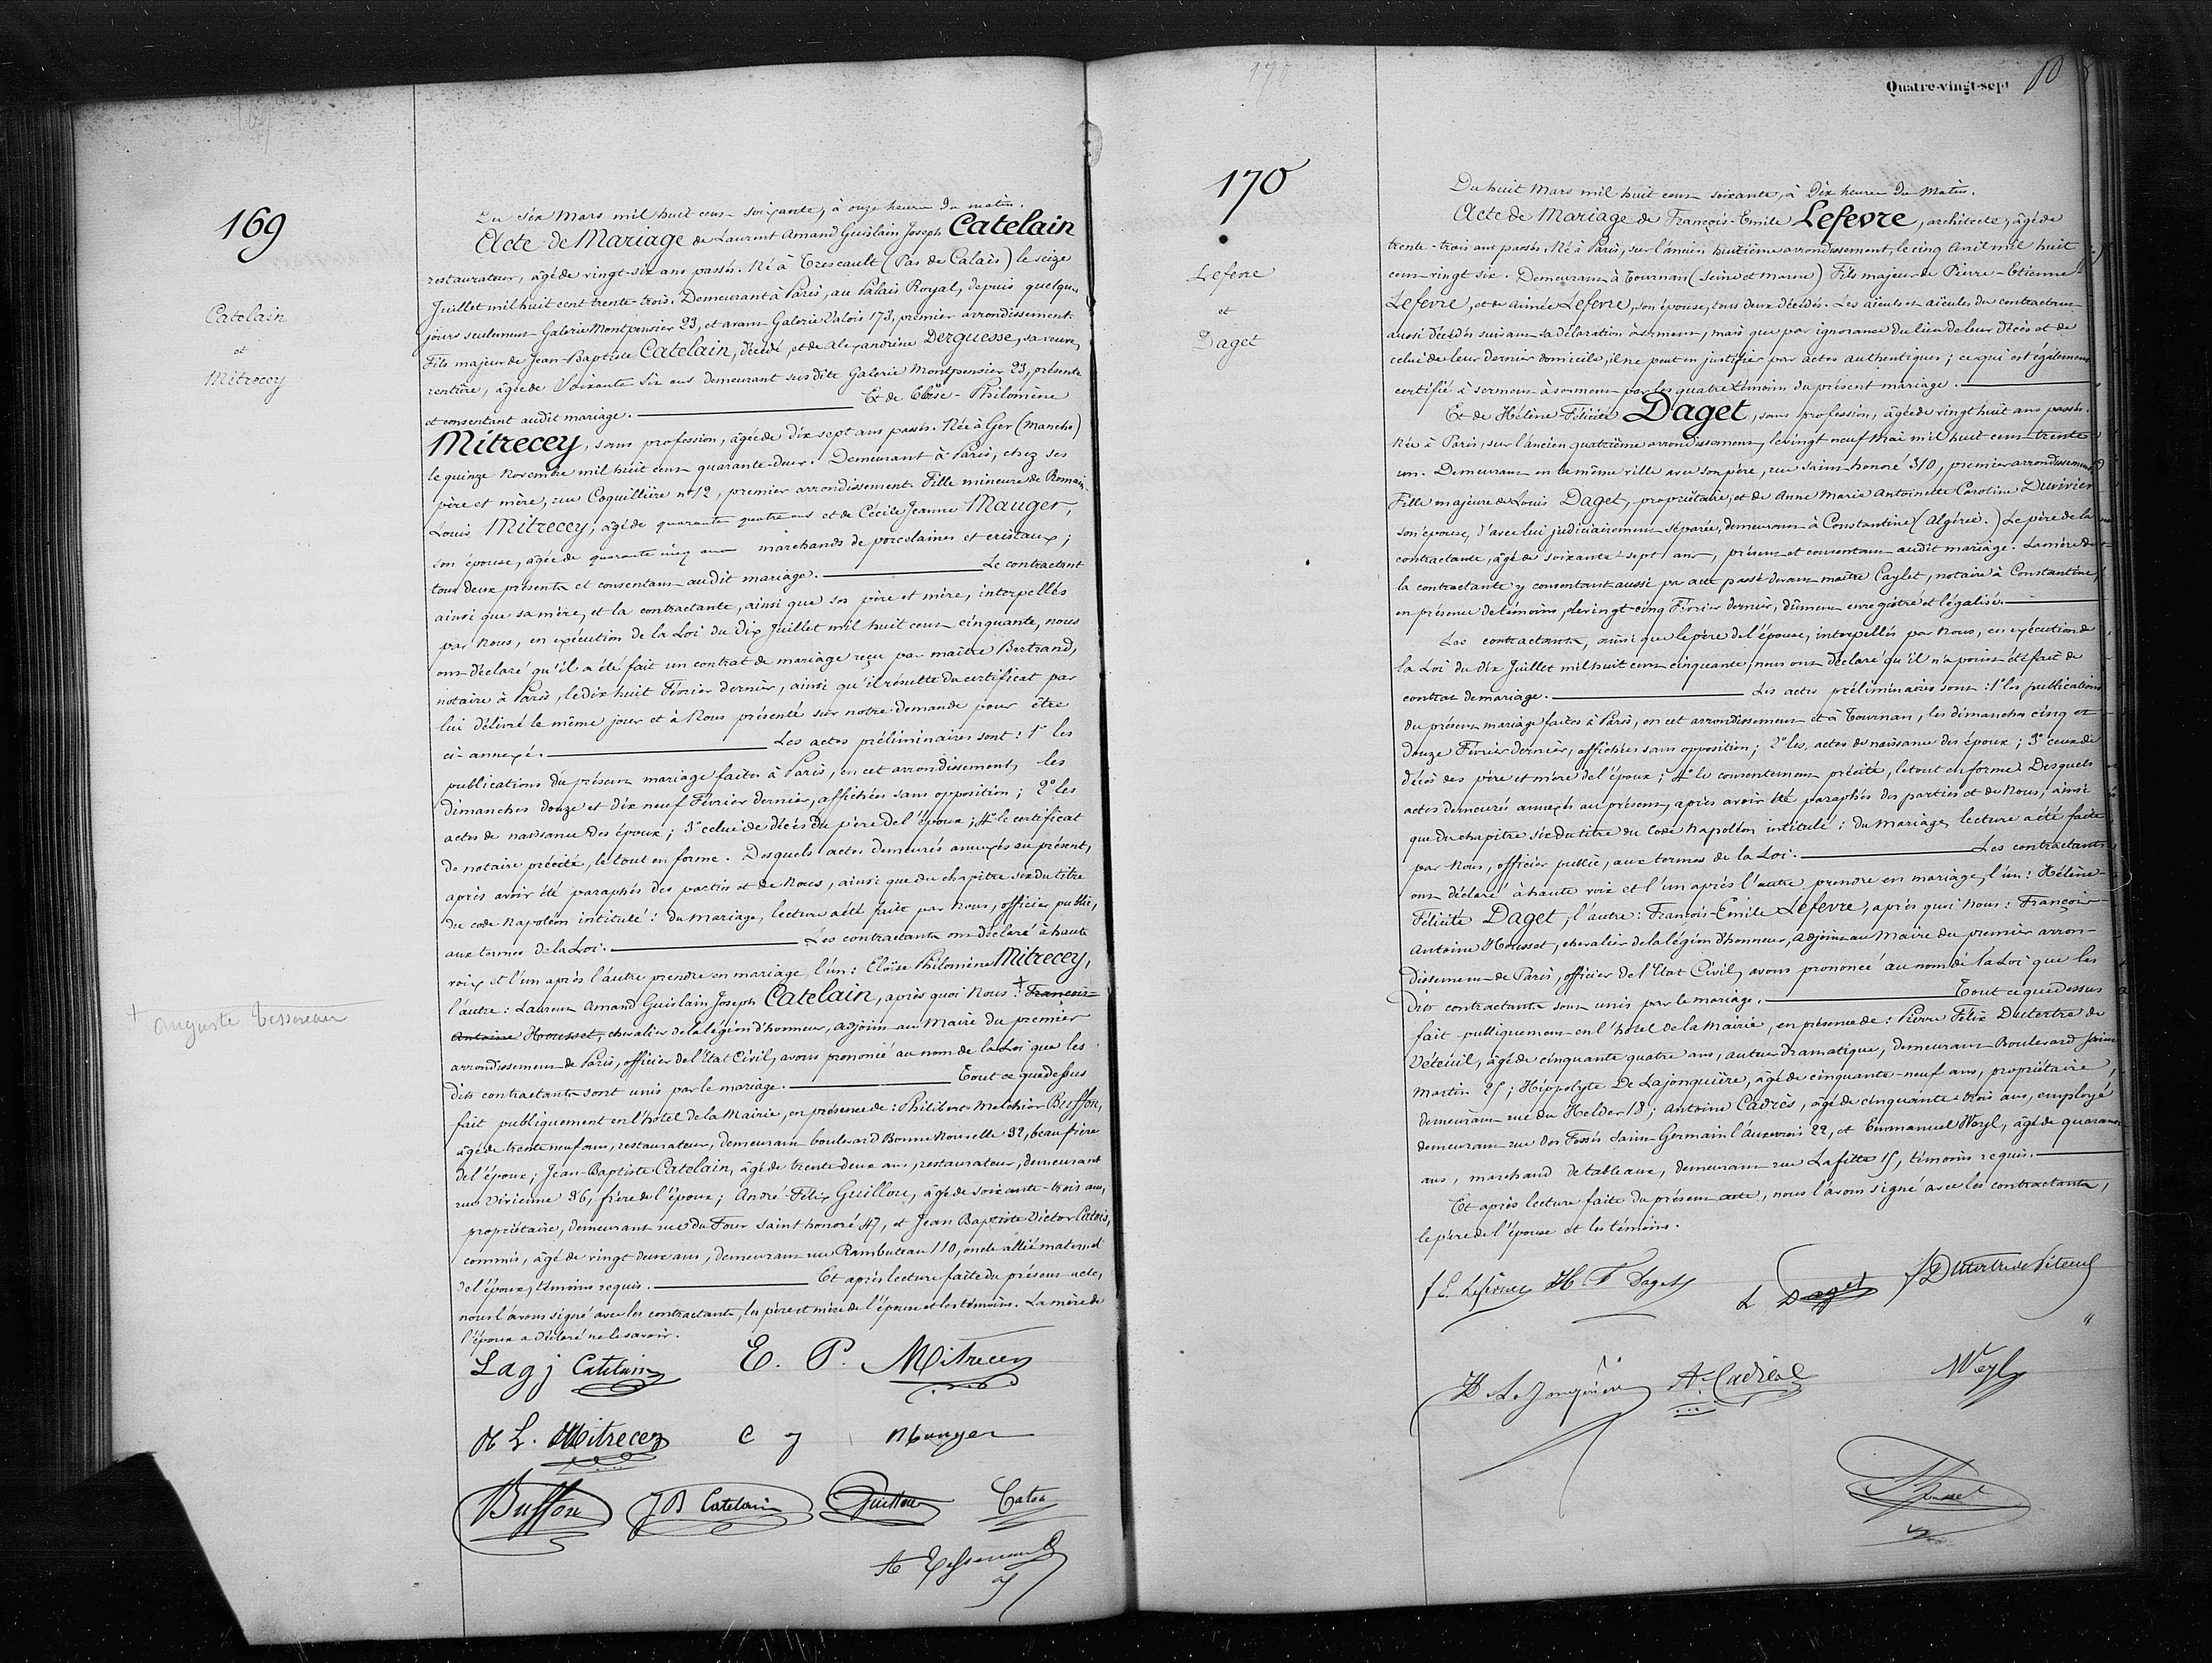 169
Catelain
et
Mitrecey
Du six Mars mil huit cent soixante, à onze heures du matin.
Acte de Mariage de Laurent Amand Guislain Joseph Catelain
restaurateur, âgé de vingt-six ans passés. Né à Trescault (Pas de Calais) le seize
Juillet mil huit cent trente-trois. Demeurant à Paris, au Palais Royal, depuis quelques
jours seulement Galerie Montpensier 23, et avant Galerie Valois 173, premier arrondissement.
Fils majeur de Jean-Baptiste Catelain, décédé, et de Alexandrine Derguesse, sa veuve,
rentière, âgée de Soixante six ans demeurant susdite Galerie Montpensier 23, présente
et consentant audit mariage. Et de Eloïse-Philomène
Mitrecey, sans profession, âgée de dix sept ans passés. Née à Ger (Manche)
le quinze Novembre mil huit cent quarante-deux. Demeurant à Paris, chez ses
père et mère, rue Coquillière no 12, premier arrondissement. Fille mineure de Romain-
Louis Mitrecey, âgé de quarante quatre ans et de Cécile Jeanne Mauger,
son épouse, âgée de quarante cinq ans marchands de porcelaines et cristaux;
tous deux présents et consentans audit mariage. Le contractant
ainsi que sa mère, et la contractante, ainsi que ses père et mère, interpellés
par Nous, en exécution de la Loi du Dix Juillet mil huit cent cinquante, nous
ont déclaré qu'il a été fait un contrat de mariage reçu par maître Bertrand,
notaire à Paris, le dix huit Février dernier, ainsi qu'il résulte du certificat par
lui délivré le même jour et à Nous présenté sur notre demande pour être
ci-annexé. Les actes préliminaires sont: 1° les
publications du présent mariage faites à Paris, en cet arrondissement, les
dimanches douze et dix neuf Février dernier, affichées sans opposition; 2° les
actes de naissance des époux; 3° celui de décès du père de l'époux; 4° le certificat
de notaire précité, le tout en forme. Desquels actes demeurés annexés au présent,
après avoir été paraphés des parties et de Nous, ainsi que du chapitre six du titre
du code Napoléon intitulé: du Mariage, lecture a été faite par Nous, officier public,
aux termes de la Loi. Les contractants ont déclaré à haute
voix et l'un après l'autre prendre en mariage, l'un: Eloïse Philomène Mitrecey,
l'autre: Laurent Amand Guislain Joseph Catelain, après quoi Nous: + François-
Antoine Housset, chevalier de la légion d'honneur, adjoint au Maire du premier
+ Auguste Tessereau
arrondissement de Paris, officier de l'Etat Civil, avons prononcé au nom de la Loi que les
dits contractants sont unis par le mariage. Tout ce que dessus
fait publiquement en l'hôtel de la Mairie, en présence de: Philibert Melchior Buffon,
âgé de trente neuf ans, restaurateur, demeurant boulevard Bonne Nouvelle 32, beau frère
de l'époux; Jean-Baptiste Catelain, âgé de trente deux ans, restaurateur, demeurant
rue Vivienne 36, frère de l'époux; André-Félix Guillou, âgé de soixante-trois ans,
propriétaire, demeurant rue du Four Saint honoré 47, et Jean Baptiste Victor Catois,
commis, âgé de vingt deux ans, demeurant rue Rambuteau 110, oncle allié maternel
de l'épouse, témoins requis. Et après lecture faite du présent acte,
nous l'avons signé avec les contractants, les père et mère de l'épouse et les témoins. La mère de
l'époux a déclaré ne le savoir.
Lagj Catelain E. P. Mitrecey
R L. Mitrecey C J Mauger
Buffon JB Catelain Guillou Catois
A Tessereau
Quatre-vingt-sept
170
Lefevre
et
Daget
Du huit Mars mil huit cent soixante, à Dix heures du Matin.
Acte de Mariage de François-Emile Lefevre, architecte, âgé de
trente-trois ans passés. Né à Paris, sur l'ancien huitième arrondissement, le cinq Avril mil huit
cent vingt six. Demeurant à Tournan (Seine et Marne) Fils majeur de Pierre-Etienne
Lefevre, et de Aimée Lefevre, son épouse, tous deux décédés. Les aïeuls et aïeules du contractant
aussi décédés suivant sa déclaration à serment, mais que par ignorance du lieu de leur décès et de
celui de leur dernier domicile, il ne peut en justifier par actes authentiques; ce qui est également
certifié à serment à serment par les quatre témoins du présent mariage.
Et de Hélène-Félicité Daget, sans profession, âgée de vingt huit ans passés.
Née à Paris, sur l'ancien quatrième arrondissement, le vingt neuf Mai mil huit cent trente
un. Demeurant en la même ville avec son père, rue Saint honoré 310, premier arrondissement
Fille majeure de Louis Daget, propriétaire, et de Anne Marie Antoinette Caroline Duvivier
son épouse, d'avec lui judiciairement séparée, demeurant à Constantine (Algérie.) Le père de la
contractante, âgé de soixante-sept ans, présent et consentant audit mariage. La mère de
la contractante y consentant aussi par acte passé devant maître Caylet, notaire à Constantine,
en présence de témoins, le vingt-cinq Février dernier, dûment enregistré et légalisé.
Les contractants, ainsi que le père de l'épouse, interpellés par Nous, en exécution de
la Loi du dix Juillet mil huit cent cinquante, nous ont déclaré qu'il n'a point été fait de
contrat de mariage. Les actes préliminaires sont: 1° les publications
du présent mariage faites à Paris, en cet arrondissement et à Tournan, les dimanches cinq et
douze Février dernier, affichées sans opposition; 2° les actes de naissance des époux; 3° ceux de
décès des père et mère de l'époux; 4° le consentement précité, le tout en forme. Desquels
actes demeurés annexés au présent, après avoir été paraphés des parties et de Nous, ainsi
que du chapitre six du titre du Code Napoléon intitulé: du Mariage, lecture a été faite
par Nous, officier public, aux termes de la Loi. Les contractants
ont déclaré à haute voix et l'un après l'autre prendre en mariage, l'un: Hélène-
Félicité Daget, l'autre: François-Emile Lefevre, après quoi Nous: François-
Antoine Housset, chevalier de la légion d'honneur, adjoint au Maire du premier arron-
dissement de Paris, officier de l'Etat Civil, avons prononcé au nom de la Loi que les
dits contractants sont unis par le mariage. Tout ce que dessus
fait publiquement en l'hôtel de la Mairie, en présence de: Pierre Félix Dutertre de
Véteuil, âgé de cinquante quatre ans, auteur dramatique, demeurant Boulevard Saint
Martin 25; Hippolyte De Lajonquière, âgé de cinquante-neuf ans, propriétaire,
demeurant rue du Helder 13; Antoine Cadrès, âgé de cinquante-trois ans, employé
demeurant rue des Fossés Saint Germain l'auxerrois 22, et Emmanuel Weyl, âgé de quarante
ans, marchand de tableaux, demeurant rue Lafitte 15, témoins requis.
Et après lecture faite du présent acte, nous l'avons signé avec les contractants,
le père de l'épouse et les témoins.
f E. Lefevre H. F Daget L Daget f Dutertre de Véteuil
H de Lajonquière A. Cadrès Weyl
Housset